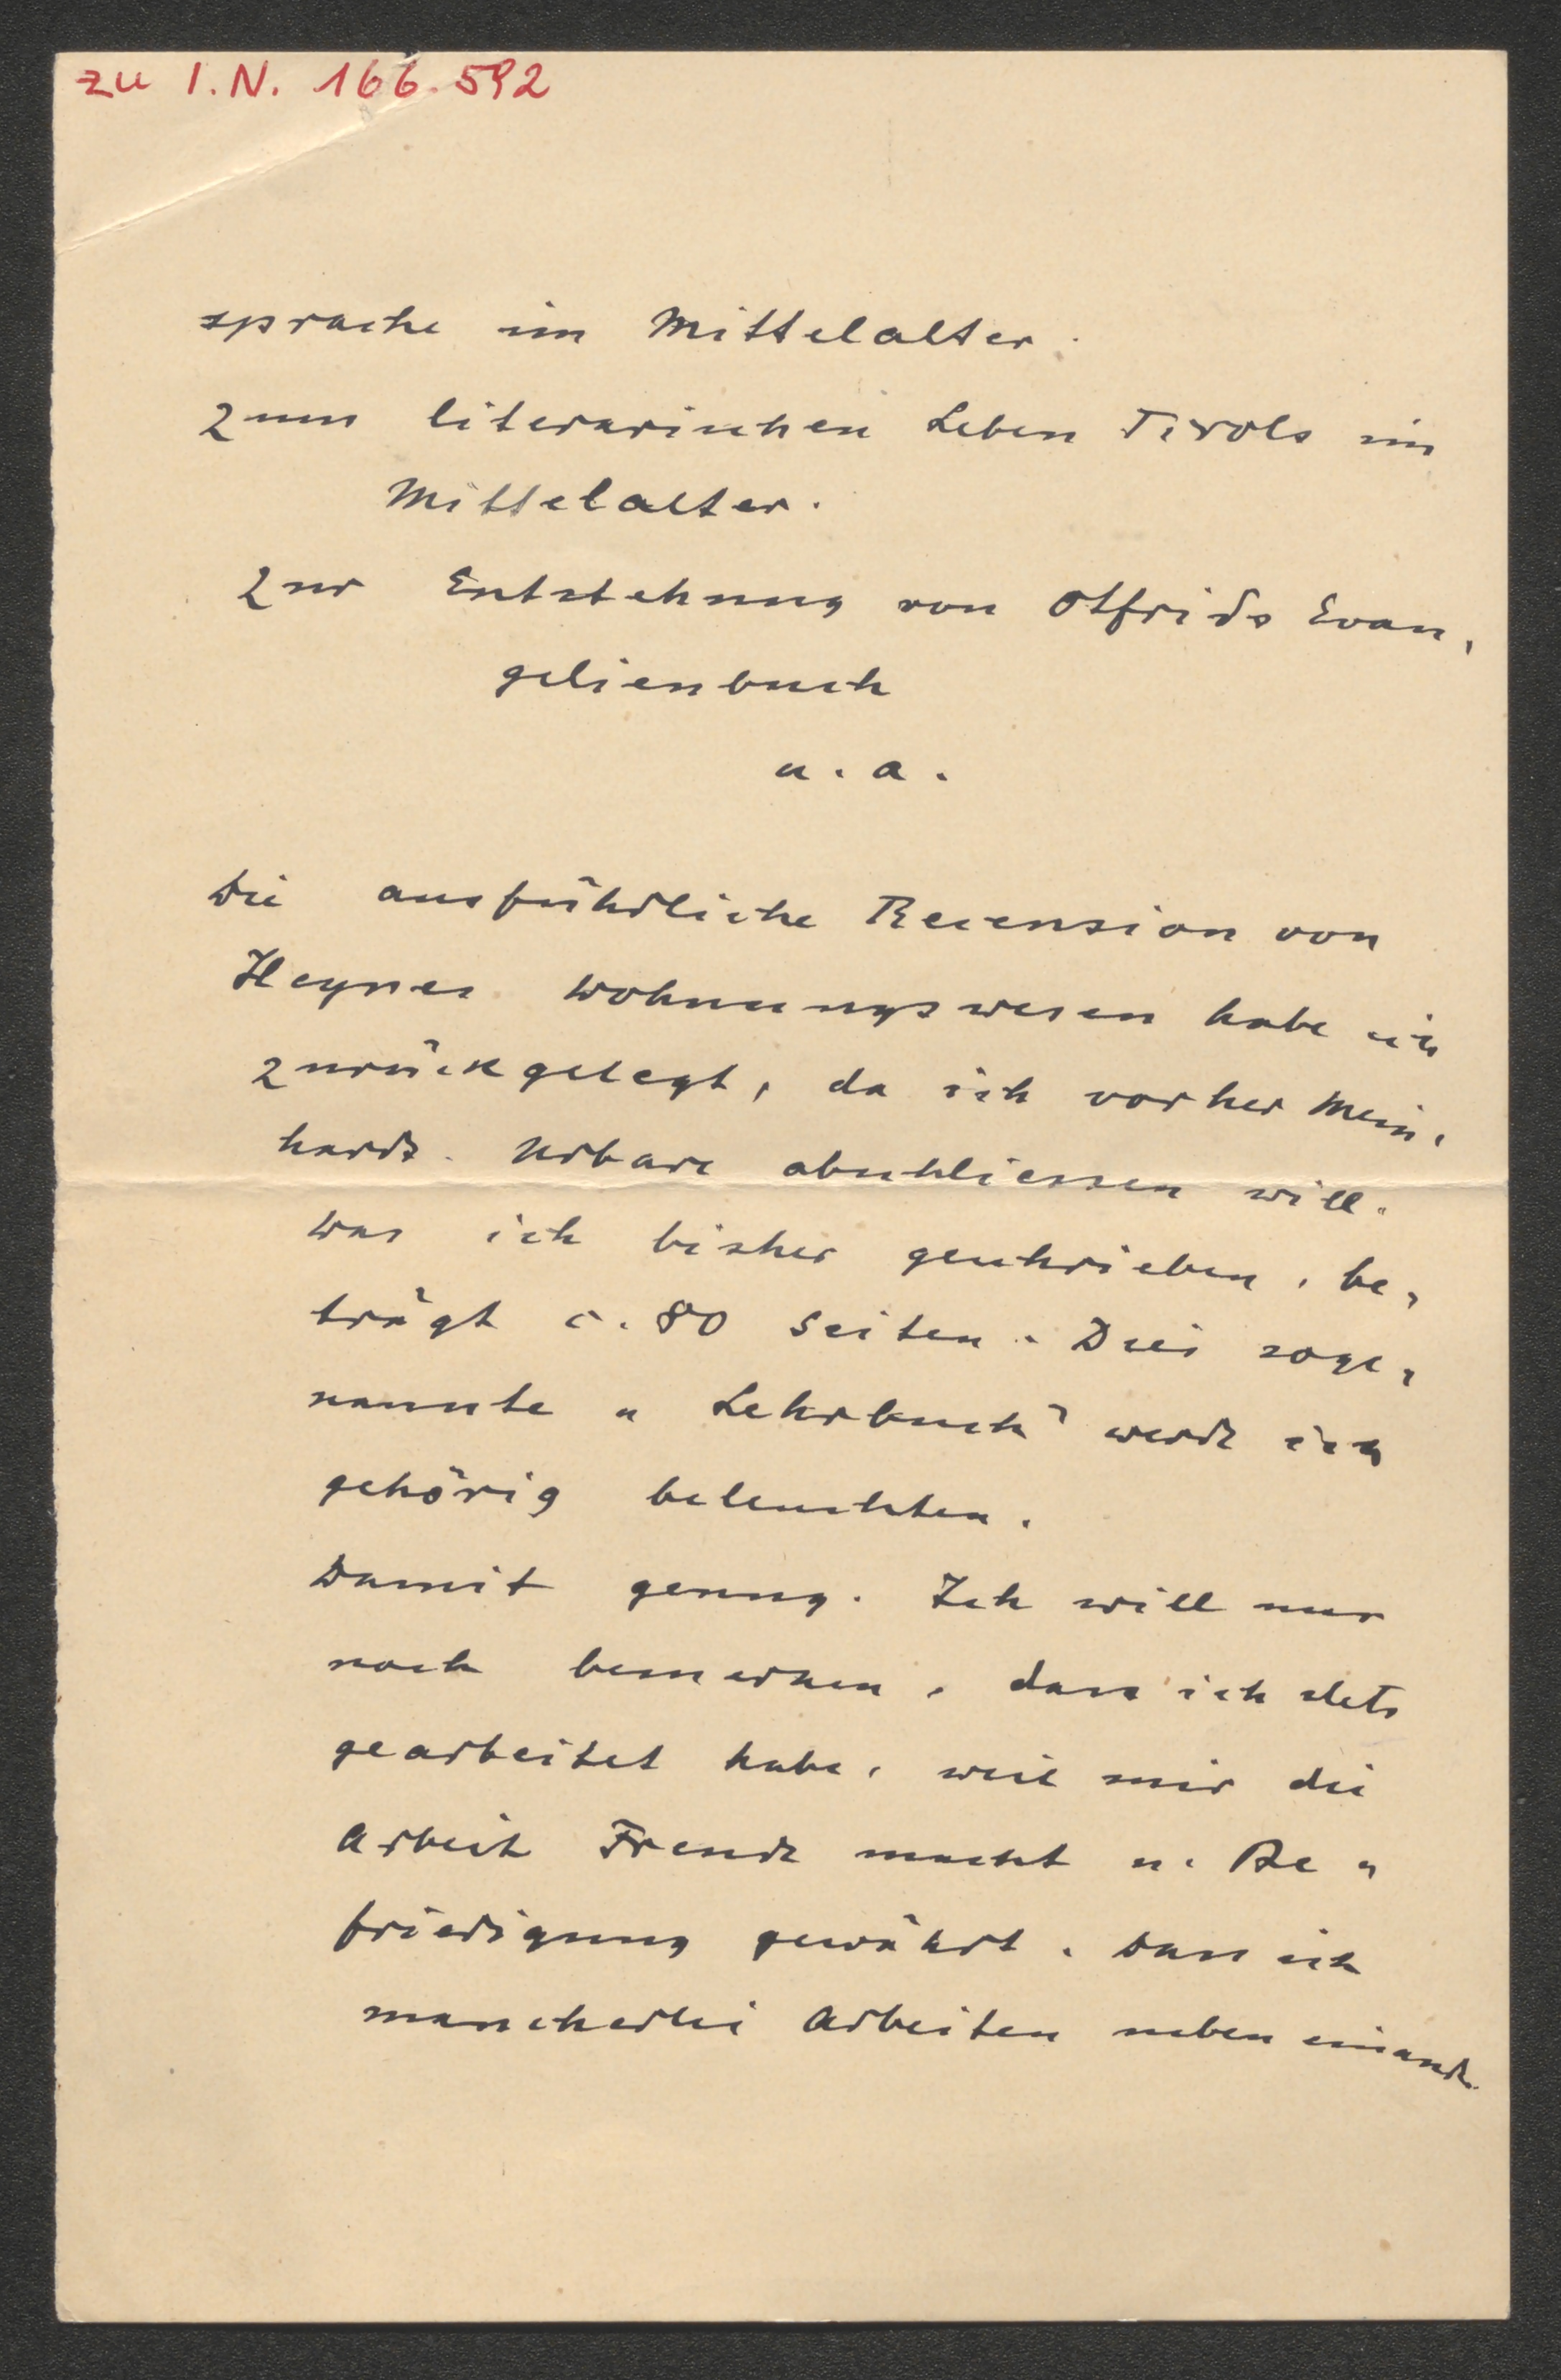 zu I.N. 166.592
sprache im Mittelalter.
Zum literarischen Leben Tirols im
Mittelalter.
Zur Entstehung von Otfrids Evan,
gelienbuch
u. a.
Die ausführliche Recension von
Heynes Wohnungswesen habe ich
zurückgelegt, da ich vorher Mein,
hards Urbare abschliessen will.
Was ich bisher geschrieben, be,
trägt c. 80 Seiten. Dies soge,
nannte „Lehrbuch" werde ich
gehörig beleuchten.
Damit genug. Ich will nur
noch bemerken, dass ich stets
gearbeitet habe, weil mir die
Arbeit Freude macht u. Be„
friedigung gewährt. Dass ich
mancherlei Arbeiten neben einand.